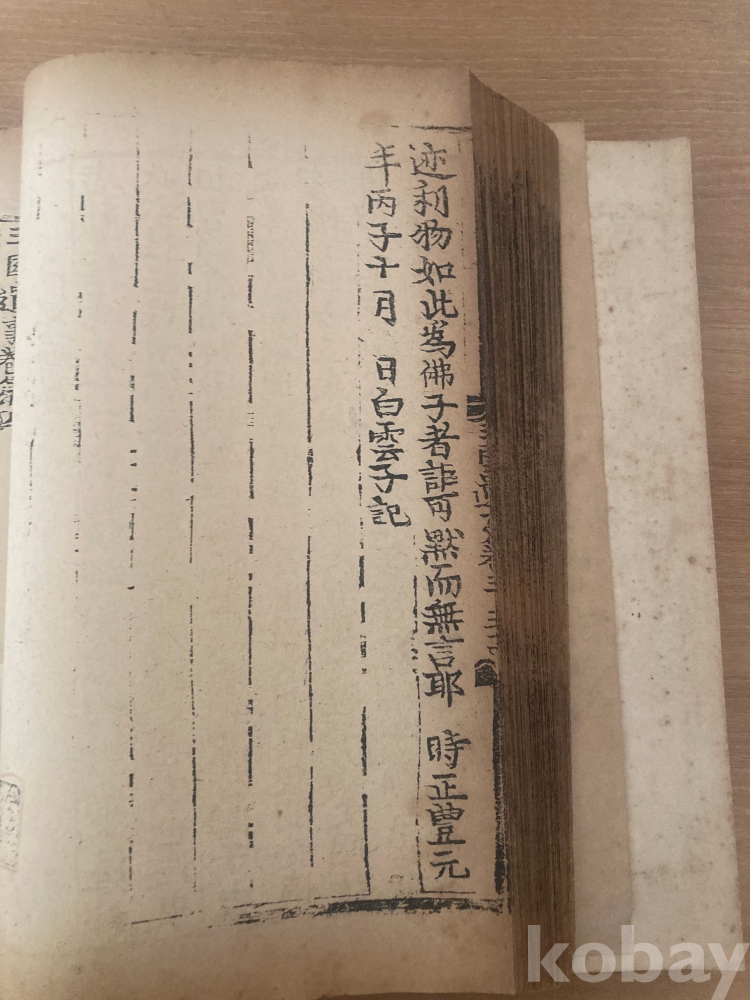 迹利物如此為佛子者詎可默而無言耶　時正豊元
年丙子十月　日白雲子記
三国遺事卷第四
kobay